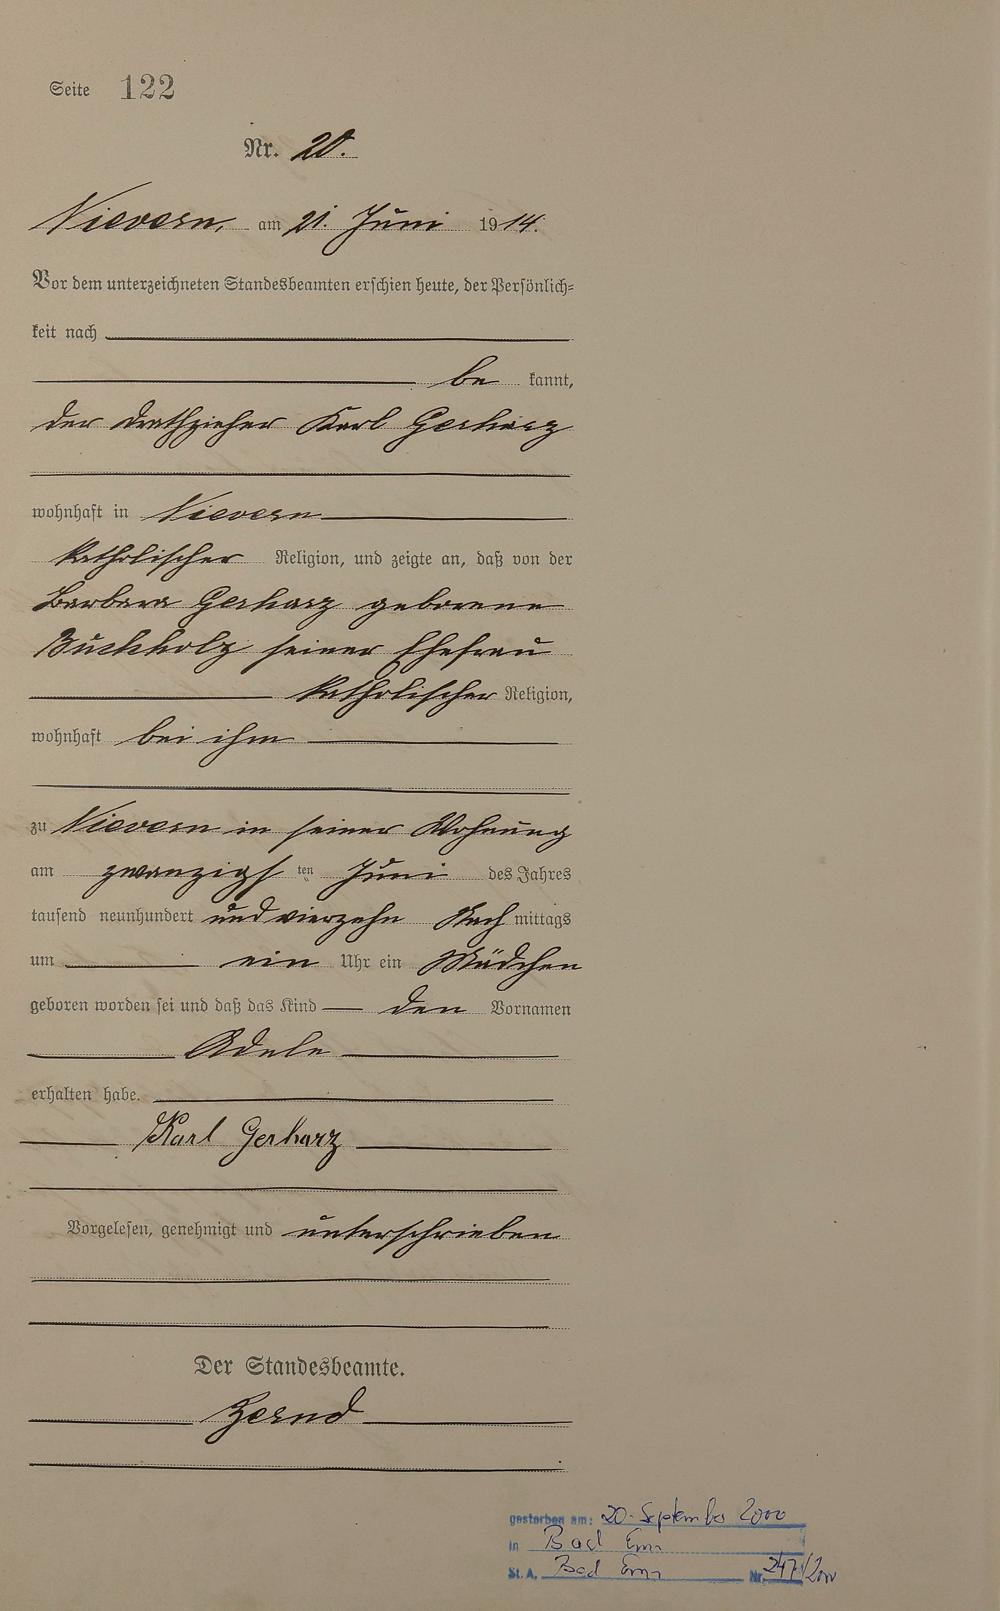 Seite 122
Nr. 20.
Nievern, am 21. Juni 1914.
Vor dem unterzeichneten Standesbeamten erschien heute, der Persönlich=
keit nach
be kannt,
der Drathzieher Karl Gerharz
wohnhaft in Nievern
katholischer Religion, und zeigte an, daß von der
Barbara Gerharz geborene
Buchholz seiner Ehefrau
katholischer Religion,
wohnhaft bei ihm
zu Nievern in seiner Wohnung
am zwanzigs ten Juni des Jahres
tausend neunhundert und vierzehn Nach mittags
um ein Uhr ein Mädchen
geboren worden sei und daß das Kind den Vornamen
Adele
erhalten habe.
Karl Gerharz
Vorgelesen, genehmigt und unterschrieben
Der Standesbeamte.
gestorben am: 20. September 2000
in Bad Ems
St.A. Bad Ems Nr. 247/2000